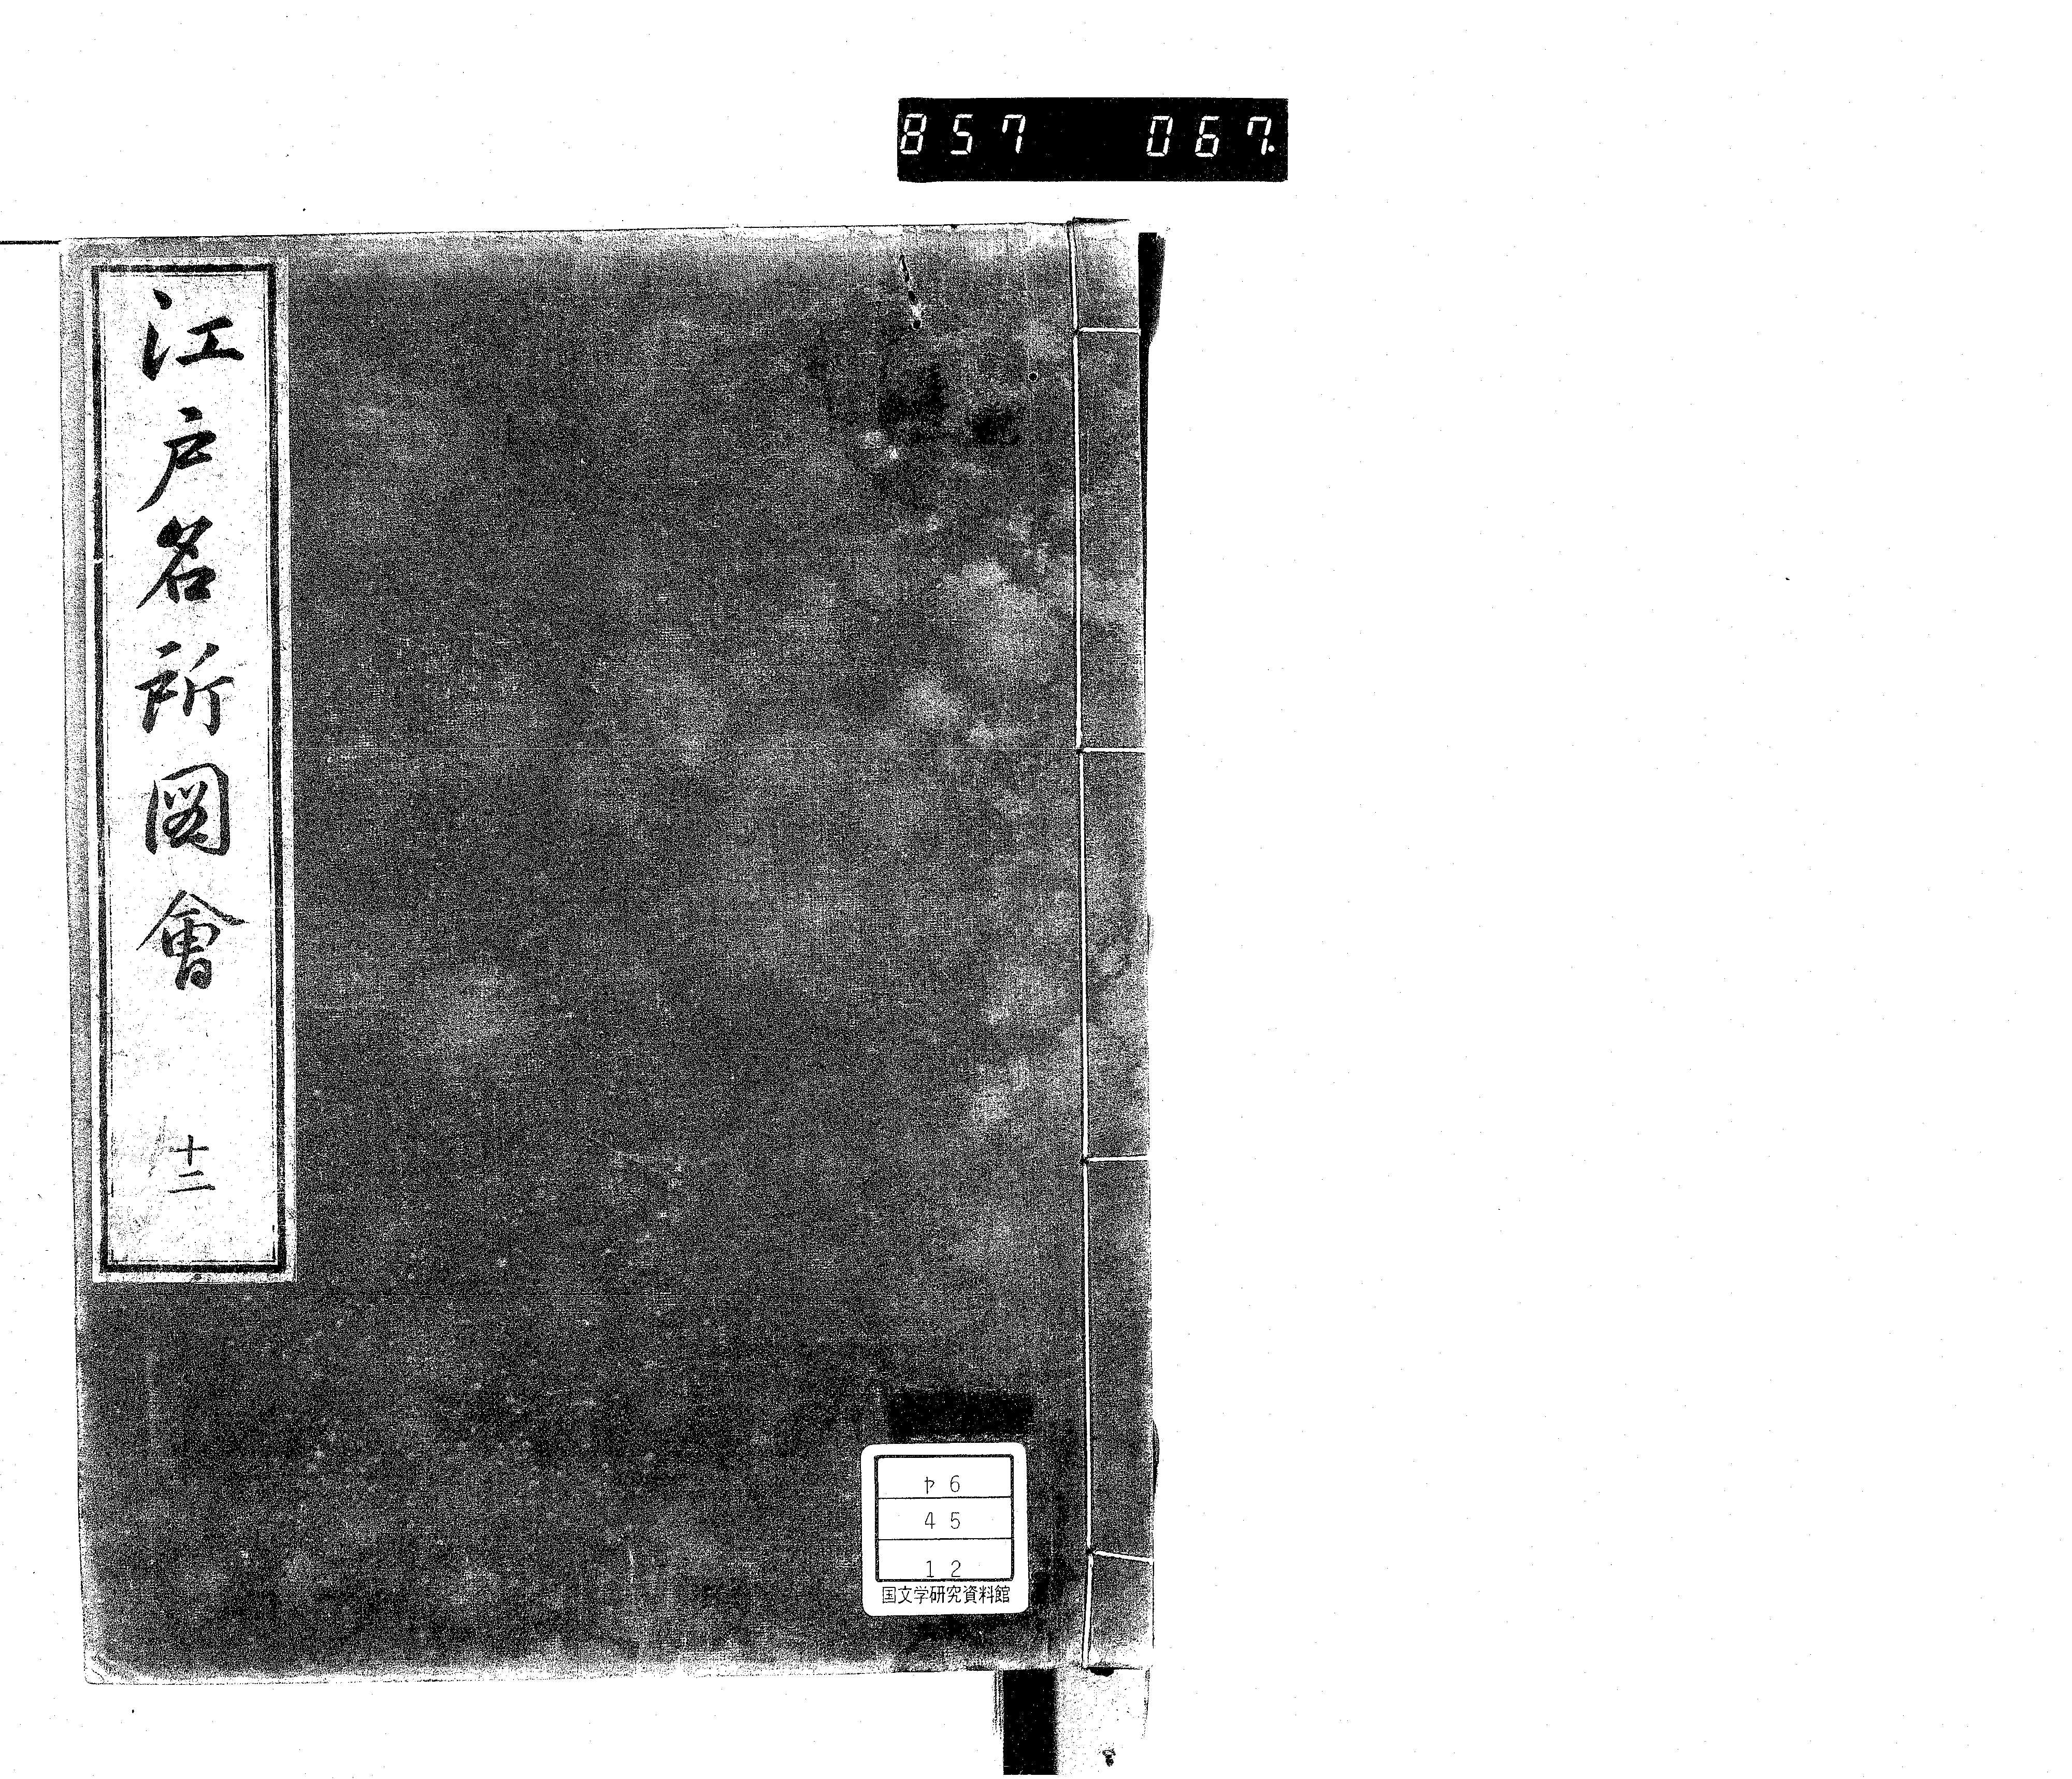 857 067.
江戸名所圖會
十二
ヤ6
45
12
国文学研究資料館